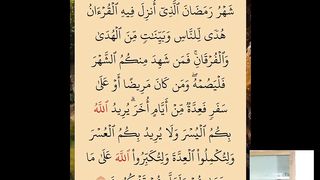 شَهْرُ رَمَضَانَ ٱلَّذِىٓ أُنزِلَ فِيهِ ٱلْقُرْءَانُ
هُدًى لِّلنَّاسِ وَبَيِّنَـٰتٍ مِّنَ ٱلْهُدَىٰ
وَٱلْفُرْقَانِ ۚ فَمَن شَهِدَ مِنكُمُ ٱلشَّهْرَ
فَلْيَصُمْهُ ۖ وَمَن كَانَ مَرِيضًا أَوْ عَلَىٰ
سَفَرٍ فَعِدَّةٌ مِّنْ أَيَّامٍ أُخَرَ ۗ يُرِيدُ ٱللَّهُ
بِكُمُ ٱلْيُسْرَ وَلَا يُرِيدُ بِكُمُ ٱلْعُسْرَ
وَلِتُكْمِلُوا۟ ٱلْعِدَّةَ وَلِتُكَبِّرُوا۟ ٱللَّهَ عَلَىٰ مَا